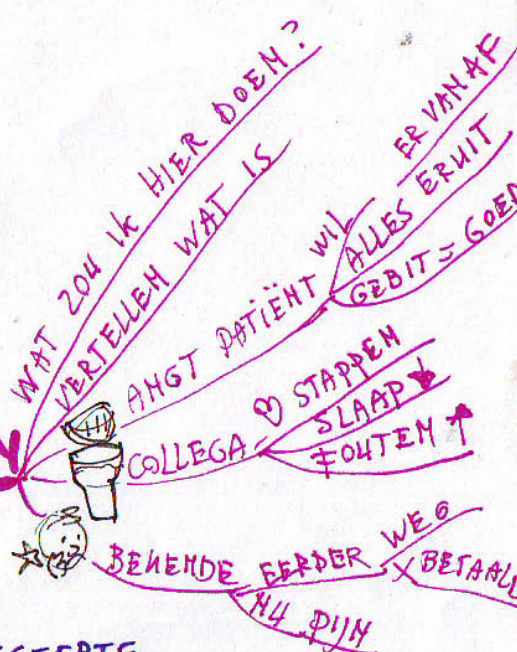 WAT ZOU IK HIER DOEN?
VERTELLEN WAT IS
ANGT PATIËNT
WIL
ER VANAF
ALLES ERUIT
GEBIT = GOED
COLLEGA
♡ STAPPEN
SLAAP ↓
FOUTEN ↑
BEKENDE
EERDER
WEG
X BETAALD
NU PIJN